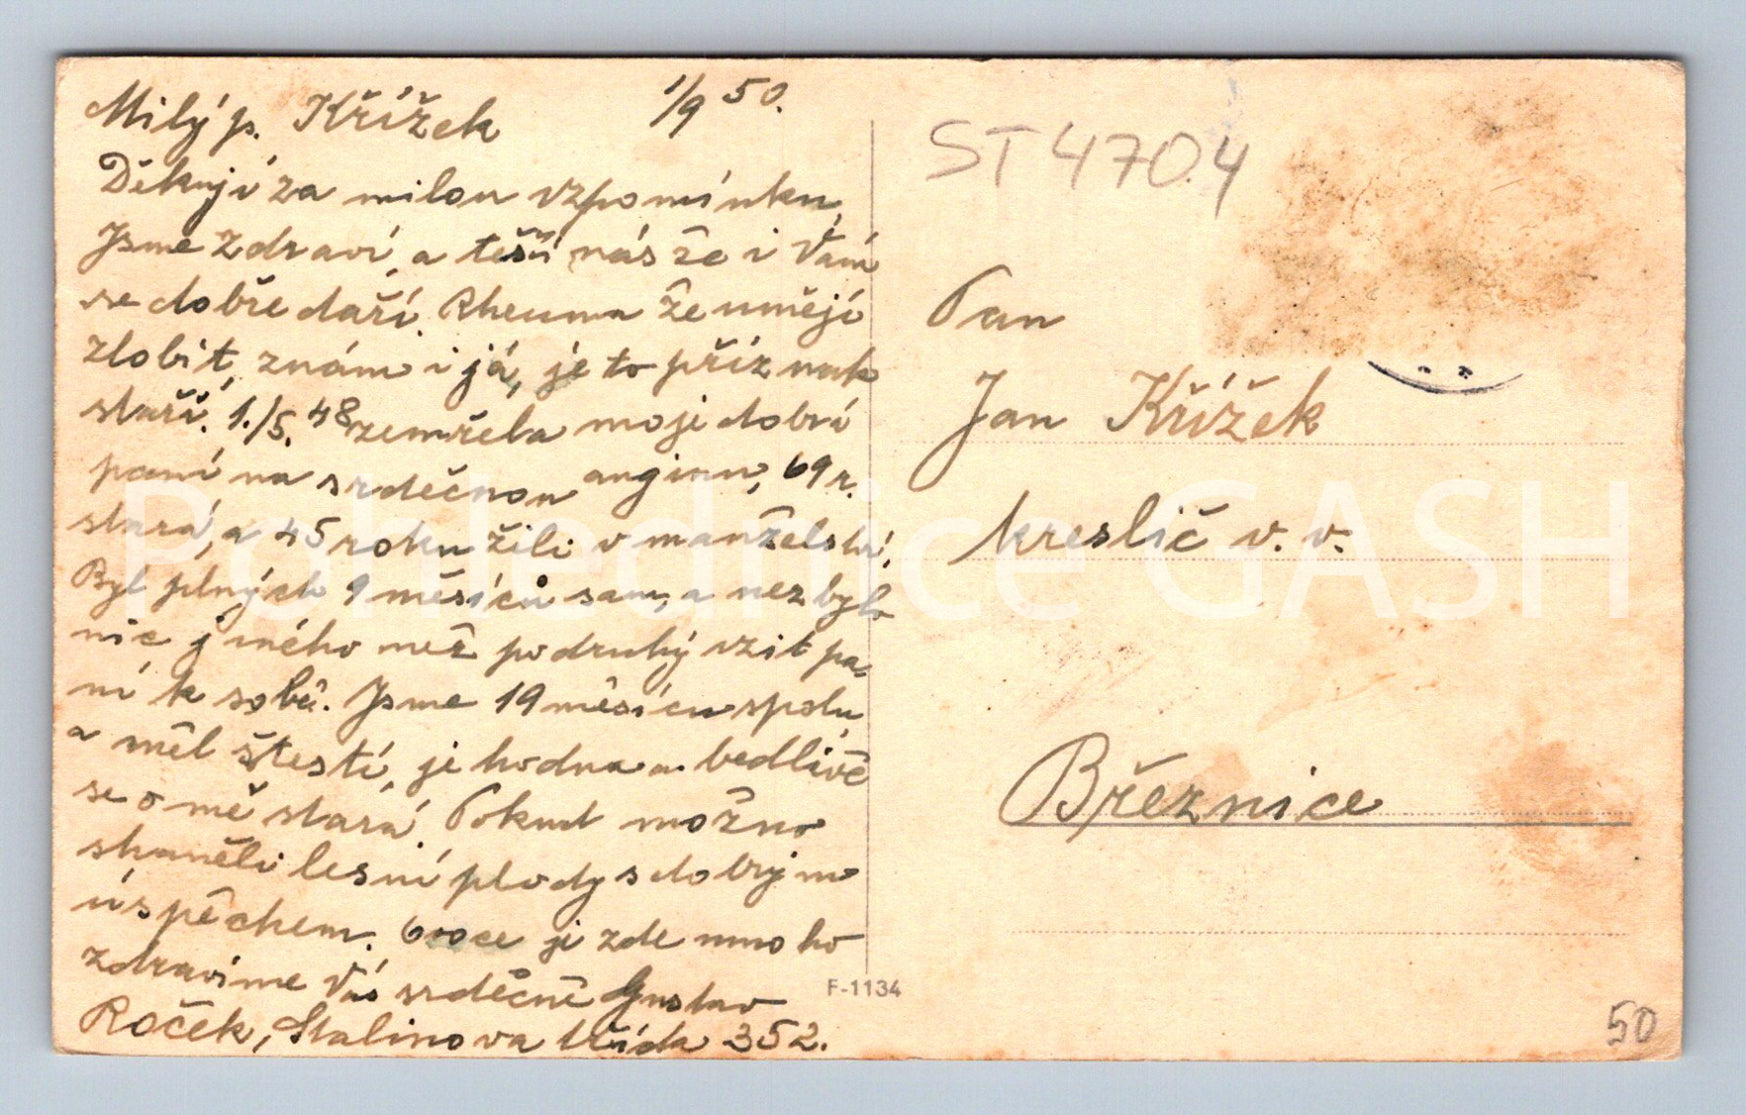 Milý p. Křížek 1/9 50.
Děkuji za milou vzpomínku,
Jsme zdraví, a těší nás že i Vám
se dobře daří. Rheuma že umějí
zlobit, znám i já, je to příznak
staří. 1./5. 48 zemřela moje dobrá
paní na srdečnou anginu, 69 r.
stará, a 45 roku žili v manželství.
Byl plných 9 měsíců sam, a nezbylo
nic jiného než podruhý vzít pa-
ní k sobě. Jsme 19 měsícu spolu,
a měl štestí, je hodna a bedlivě
se o mě stará. Pokud možno
sháněli lesní plody s dobrým
úspěchem. Ovoce je zde mnoho
zdravíme Vás srdečně Gustav
Roček, Stalinova třída 352.
F-1134
ST 4704
Pan
Jan Křížek
kreslič v. v.
Březnice
50
Pohlednice GASH